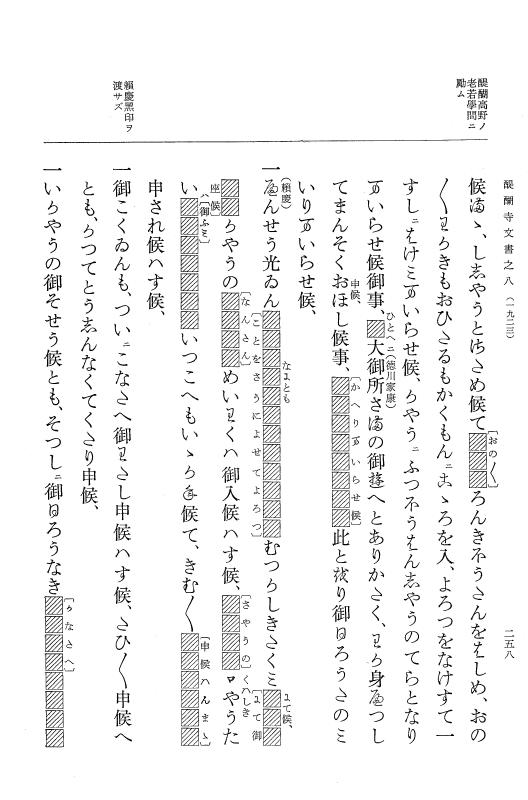 醍醐寺文書之八(一九二三)
二五八
醍醐高野ノ
老若學問ニ
勵ム
賴慶黑印ヲ
渡サズ
候まゝ、し志やうとさため候て〔おの〱〕ろんきふうさんをはしめ、おの
〱わかきもおひたるもかくもんニこゝろを入、よろつをなけすて一
すしニはけミまいらせ候、かやうニふつふうはん志やうのてらとなり
まいらせ候御事、ひとへニ大御所(徳川家康)さまの御へとありかたく、わか身つし
てまんそくおほし申候、候事、〔かへりまいらせ候〕此とをり御ひろうたのミ
いりまいらせ候、
一(賴慶)んせう光ゐんなにとも〔ことをさうによせてよろつ〕むつかしきさくミにて候、〔にて御
座候〕かやうの〔なんさん〕めいわくハ御入候ハす候、〔さやうの〕くハしきロやうた
い〔御ふミ〕いつこへもいゝわけ候て、きむ〱〔申候ハんまゝ〕
申され候ハす候、
一御こくゐんも、ついニこなたへ御わたし申候ハす候、たひ〱申候へ
とも、かつてとう志んなくてくたり申候、
一いかやうの御そせう候とも、そつしニ御ひろうなき〔かなさへ〕